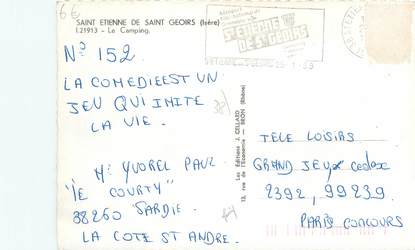 6€
SAINT ETIENNE DE SAINT GEOIRS (Isère)
I.21913 - Le Camping.
ST ETIENNE
DE ST GEOIRS
N° 152
LA COMEDIE EST UN
JEU QUI IMITE
LA VIE.
Mr YVOREL PAUL
"LE COURTY"
38260 SARDIE
LA COTE ST ANDRE.
Les Editions J. CELLARD
13, rue de l'Economie - BRON (Rhône)
TELE LOISIRS
GRAND JEU cedex
2392, 99239
PARIS CONCOURS